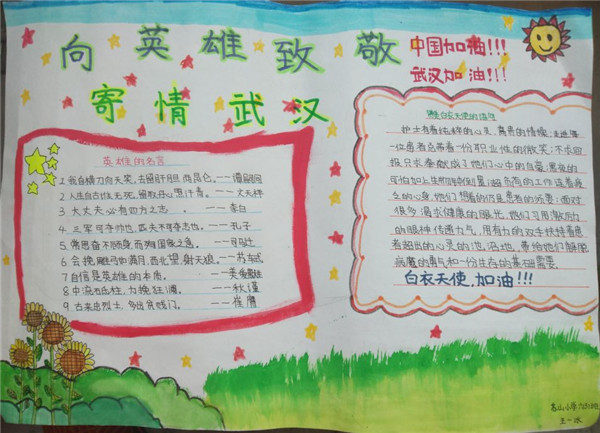 向英雄致敬
寄情武汉
中国加油!!!
武汉加油!!!
英雄的名言
1.我自横刀向天笑,去留肝胆两昆仑。——谭嗣同
2.人生自古谁无死,留取丹心照汗青。——文天祥
3.大丈夫必有四方之志。——李白
4.三军可夺帅也,匹夫不可夺志也。——孔子
5.常思奋不顾身,而殉国家之急。——司马迁
6.会挽雕弓如满月,西北望,射天狼。——苏东坡
7.自信是英雄的本质。——爱
8.中流砥柱,力挽狂澜。——秋瑾
9.古来忠烈士,多出贫贱门。——崔膺
白衣天使的诗句
护士有着纯粹的心灵,高贵的情操:走进
你患者心带着一份职业性的微笑:不求回
报只求奉献成了他们心中的自豪
的心身,她们想着的仍是患者的
很多渴求健康的眼光,他们可用激励
的眼神传遍力气,用有力的双手扶持着患
者超出的心灵的池沼地,带给他们解脱
病魔的勇气和一份生存的基础需要。
白衣天使,加油!!!
王一冰